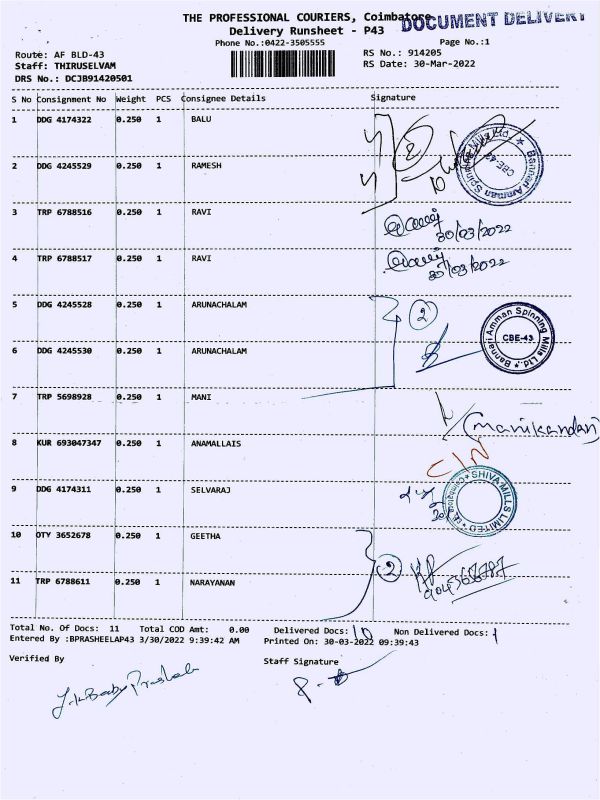 THE PROFESSIONAL COURIERS, Coimbatore
DOCUMENT DELIVERY
Delivery Runsheet - P43
Phone No.:0422-3505555
Page No.:1
Route: AF BLD-43
RS No.: 914205
Staff: THIRUSELVAM
RS Date: 30-Mar-2022
DRS No.: DCJB91420501
S No Consignment No Weight PCS Consignee Details Signature
1 DDG 4174322 0.250 1 BALU
2
Bannari Amman Spinning Mills Ltd.
CBE-43
2 DDG 4245529 0.250 1 RAMESH
3 TRP 6788516 0.250 1 RAVI
30/03/2022
4 TRP 6788517 0.250 1 RAVI
30/03/2022
5 DDG 4245528 0.250 1 ARUNACHALAM
2
Bannari Amman Spinning Mills Ltd.
CBE-43
6 DDG 4245530 0.250 1 ARUNACHALAM
7 TRP 5698928 0.250 1 MANI
(Manikandan)
8 KUR 693047347 0.250 1 ANAMALLAIS
C/N
9 DDG 4174311 0.250 1 SELVARAJ
SHIVA MILLS LIMITED
10 OTY 3652678 0.250 1 GEETHA
2
11 TRP 6788611 0.250 1 NARAYANAN
Total No. Of Docs: 11 Total COD Amt: 0.00 Delivered Docs: 10 Non Delivered Docs: 1
Entered By :BPRASHEELAP43 3/30/2022 9:39:42 AM Printed On: 30-03-2022 09:39:43
Verified By
Staff Signature